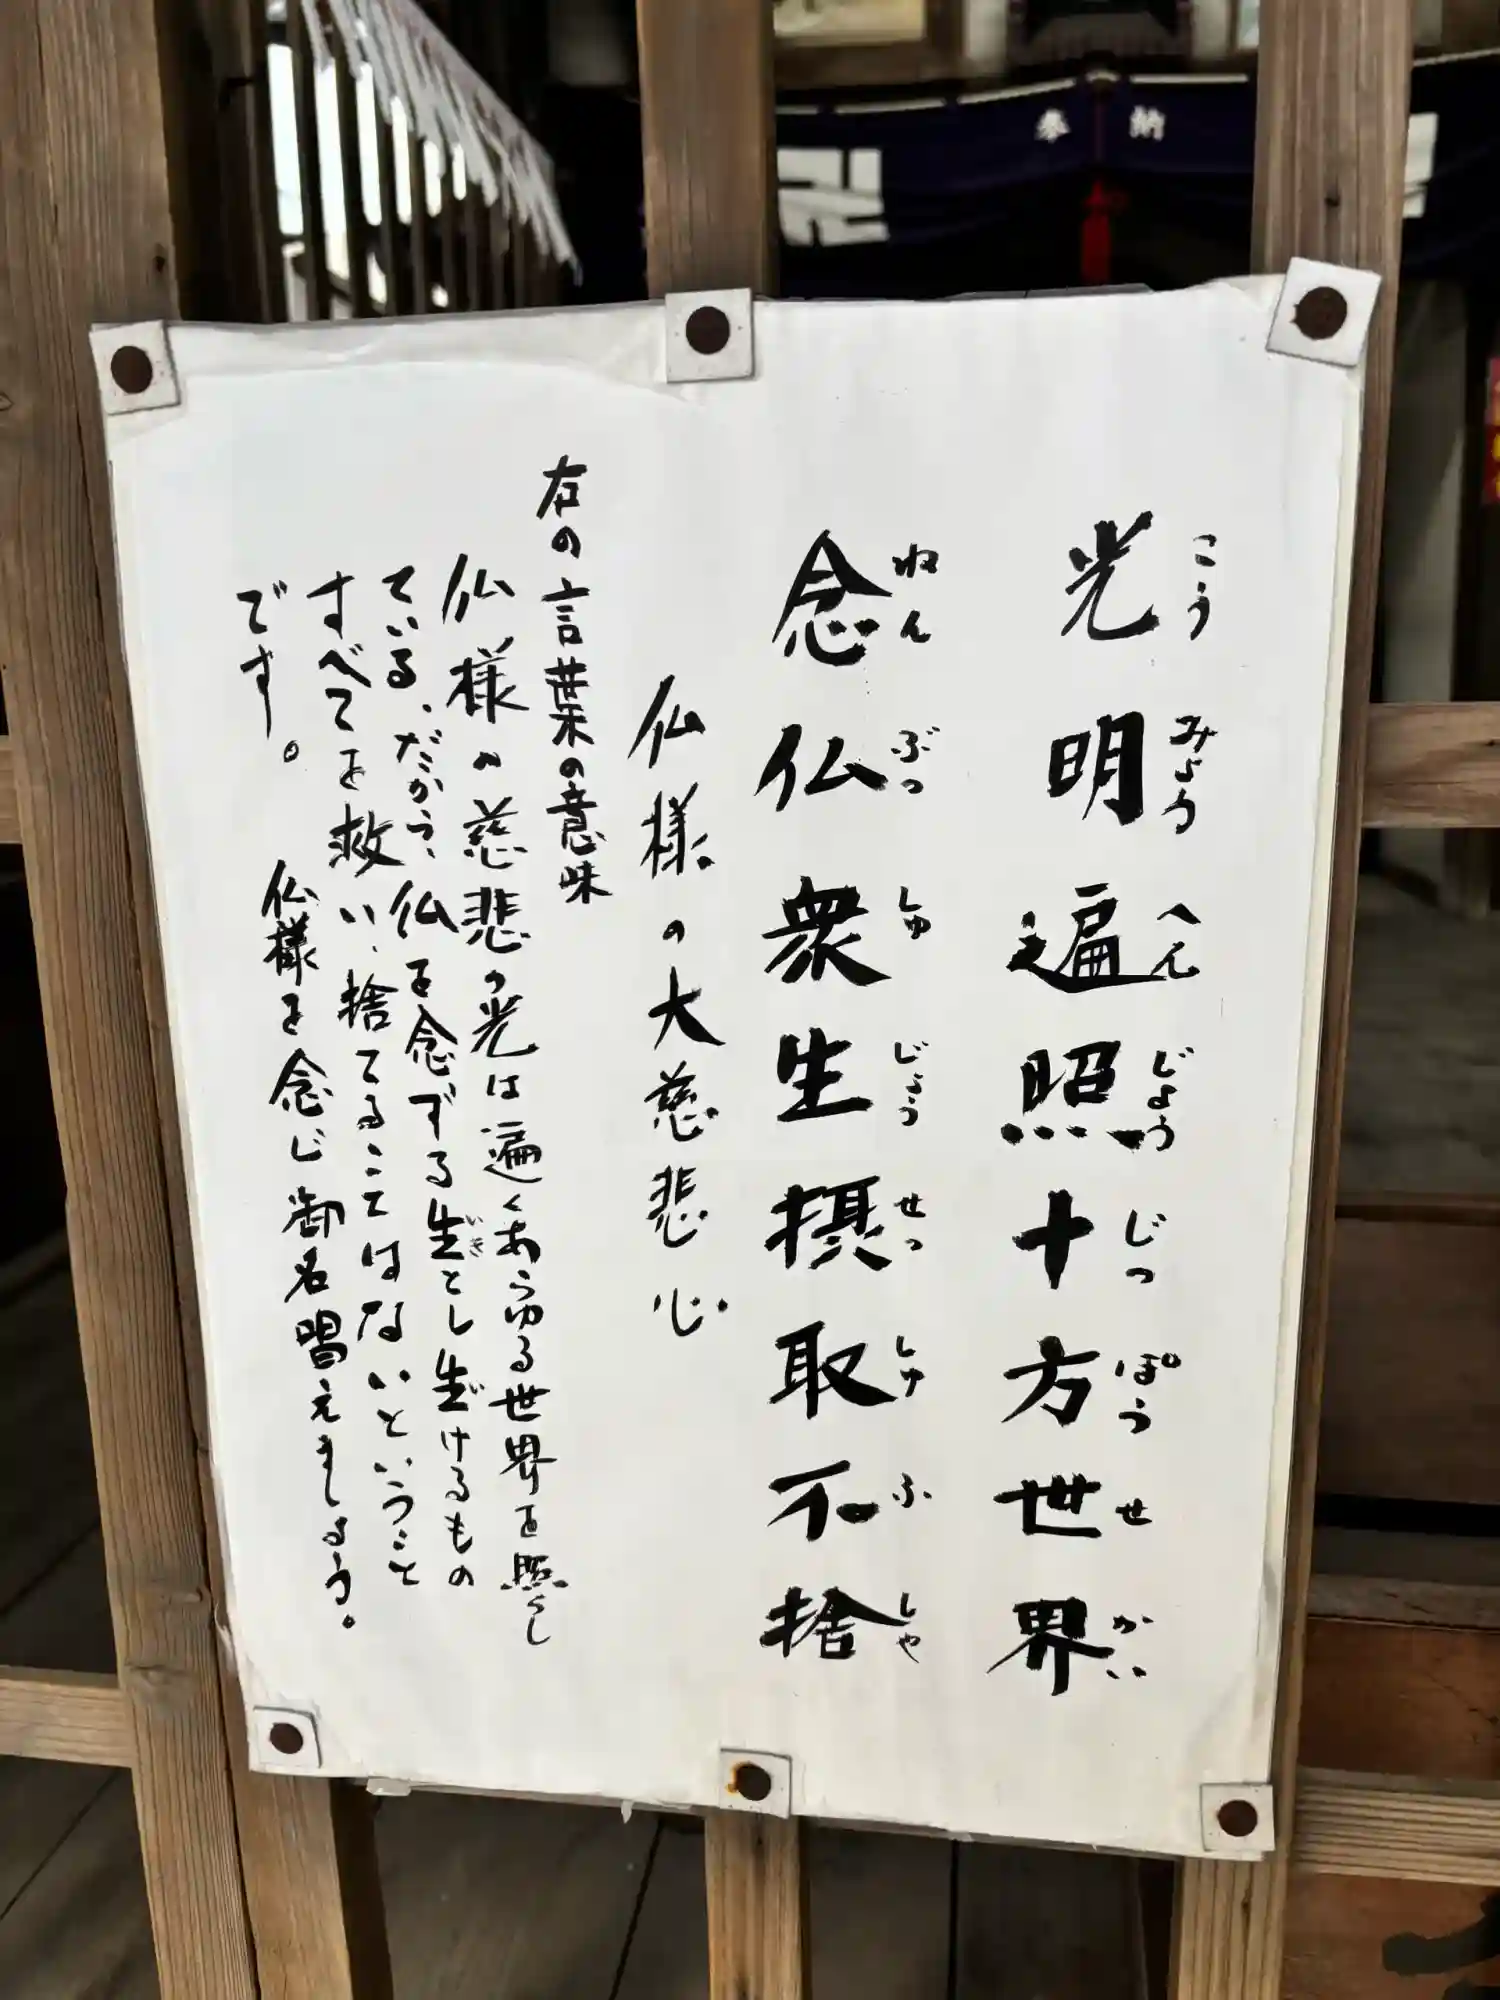 奉納
光明遍照十方世界
こうみょうへんじょうじっぽうせかい
念仏衆生摂取不捨
ねんぶつしゅじょうせっしゅふしゃ
仏様の大慈悲心
右の言葉の意味
仏様の慈悲の光は遍くあらゆる世界を照らし
ている、だから、仏を念ずる生とし生けるもの
いき
すべてを救い、捨てることはないということ
です。
仏様を念じ御名唱えましょう。